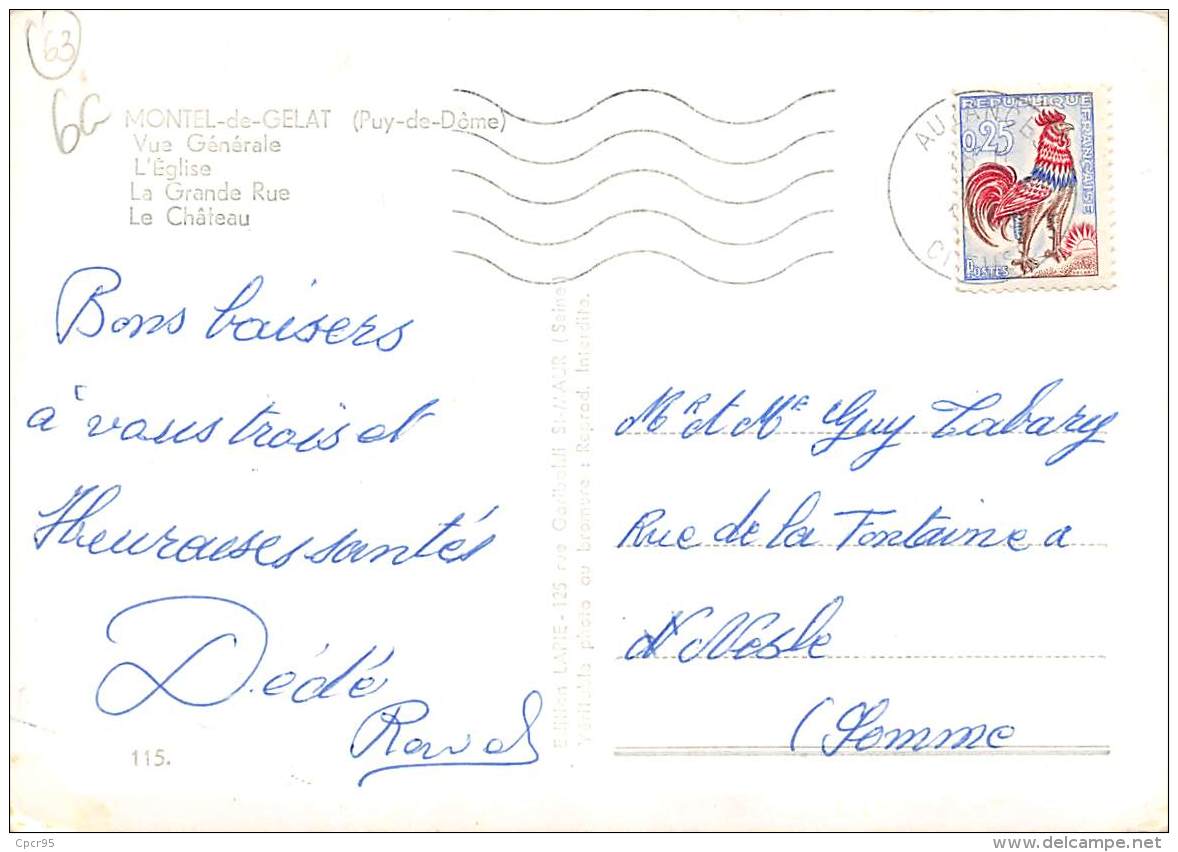 63
6G
MONTEL-de-GELAT (Puy-de-Dôme)
Vue Générale
L'Église
La Grande Rue
Le Château
REPUBLIQUE FRANÇAISE
0,25
POSTES
Bons baisers
à vous trois et
Heureuses santés
Dédé
115.
Edition LAPIE - 125 rue Garibaldi St-MAUR (Seine)
Véritable photo au bromure : Reprod. Interdite.
Mr et Me Guy Tabary
Rue de la Fontaine a
Nesle
(Somme
Cpcr95
www.delcampe.net